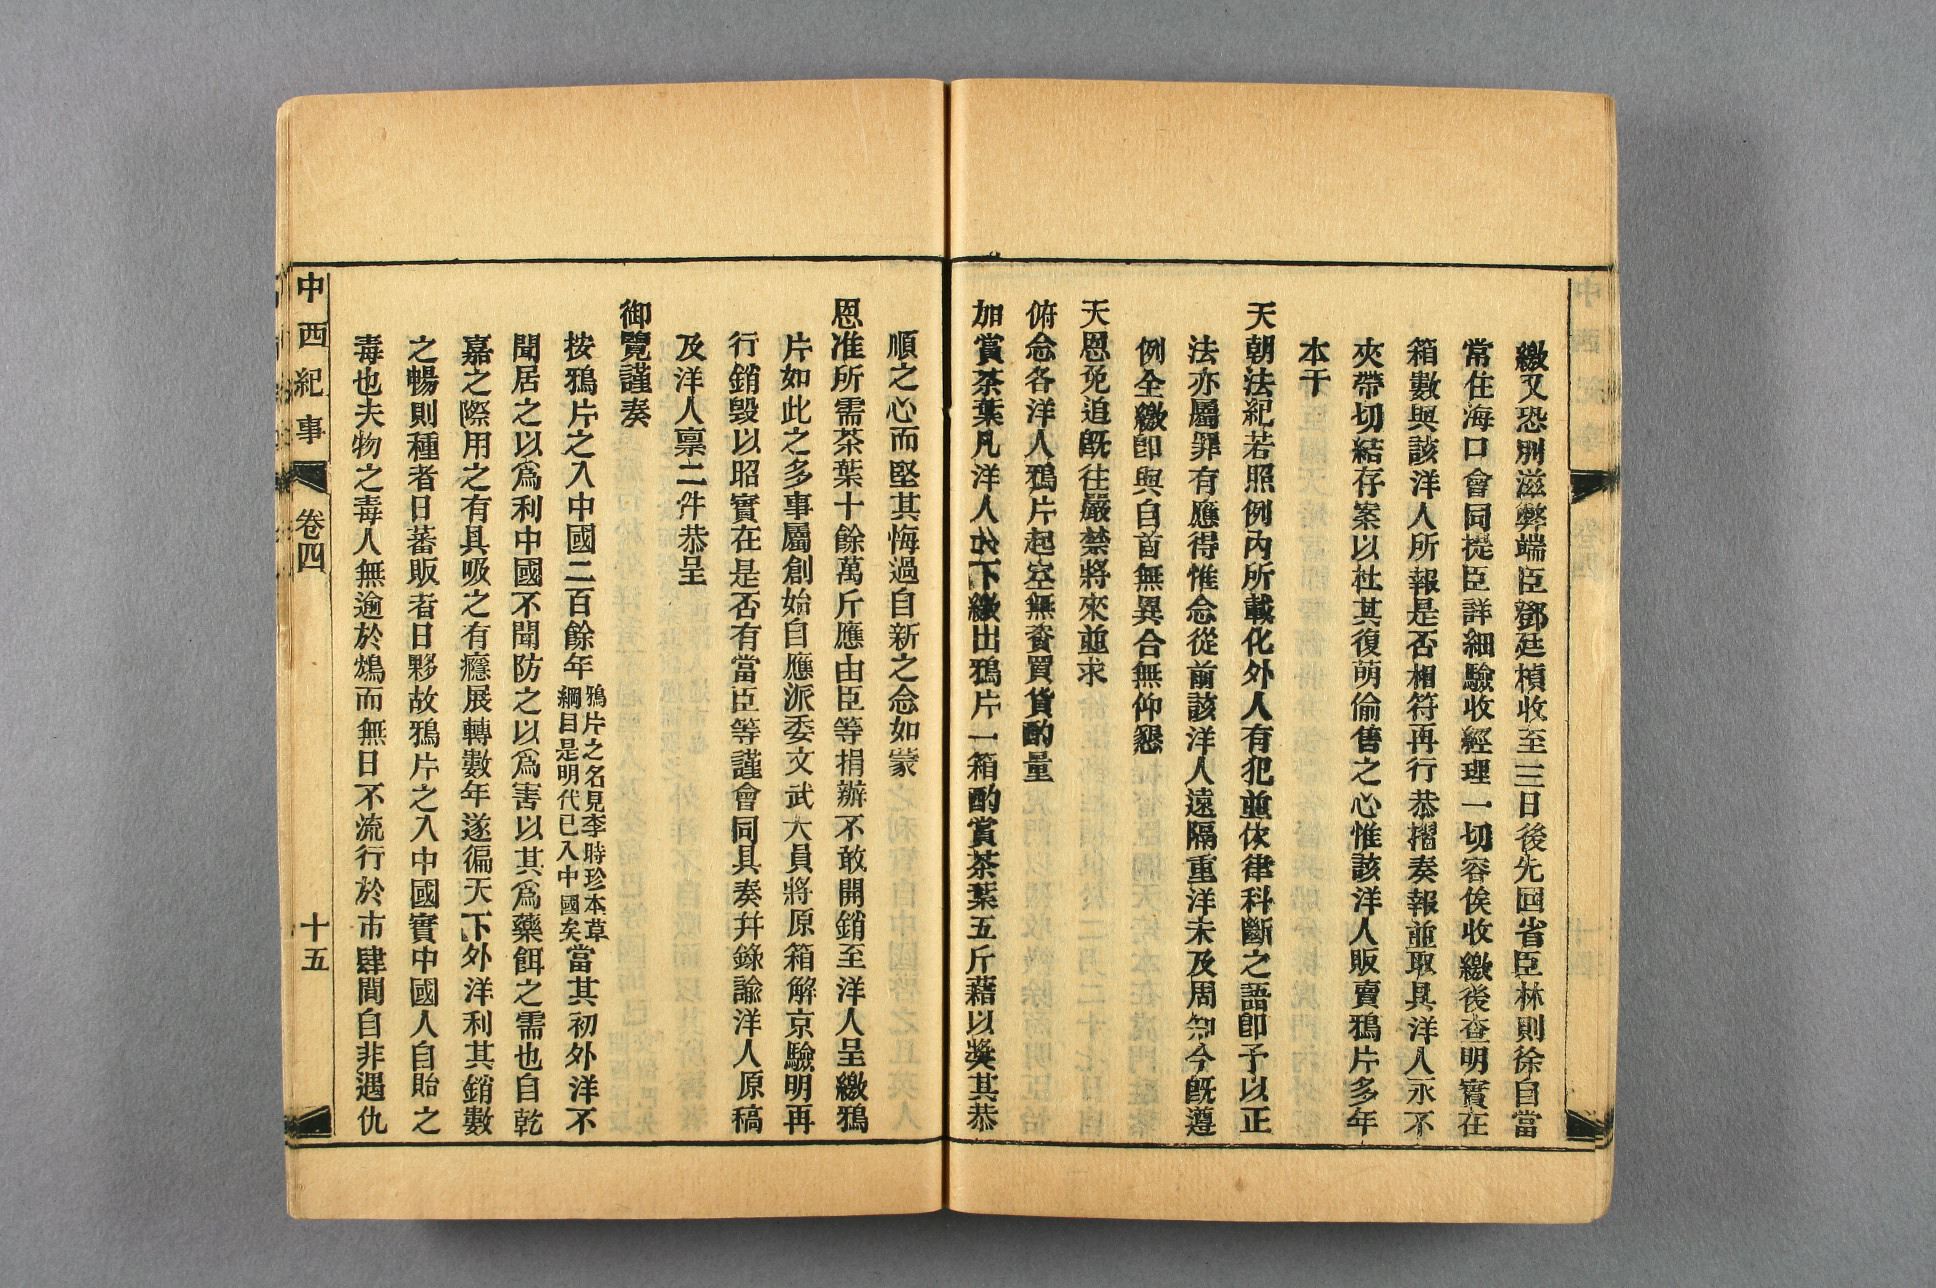 繳又恐別滋弊端臣鄧廷楨收至三日後先回省臣林則徐自當
常住海口會同提臣詳細驗收經理一切容俟收繳後查明實在
箱數與該洋人所報是否相符再行恭摺奏報並取具洋人永不
夾帶切結存案以杜其復萌偷售之心惟該洋人販賣鴉片多年
本干
天朝法紀若照例內所載化外人有犯並伙律科斷之語卽予以正
法亦屬罪有應得惟念從前該洋人遠隔重洋未及周知今旣遵
例全繳卽與自首無異合無仰懇
天恩免追旣往嚴禁將來並求
俯念各洋人鴉片起空無資買貨酌量
加賞茶葉凡洋人名下繳出鴉片一箱酌賞茶葉五斤藉以獎其恭
順之心而堅其悔過自新之念如蒙
恩准所需茶葉十餘萬斤應由臣等捐辦不敢開銷至洋人呈繳鴉
片如此之多事屬創始自應派委文武大員將原箱解京驗明再
行銷毀以昭實在是否有當臣等謹會同具奏幷錄諭洋人原稿
及洋人禀二件恭呈
御覽謹奏
按鴉片之入中國二百餘年鴉片之名見李時珍本草綱目是明代已入中國矣當其初外洋不
聞居之以爲利中國不聞防之以爲害以其爲藥餌之需也自乾
嘉之際用之有具吸之有癮展轉數年遂徧天下外洋利其銷數
之暢則種者日蕃販者日夥故鴉片之入中國實中國人自貽之
毒也夫物之毒人無逾於鴆而無日不流行於市肆間自非遇仇
中西紀事 卷四 十五